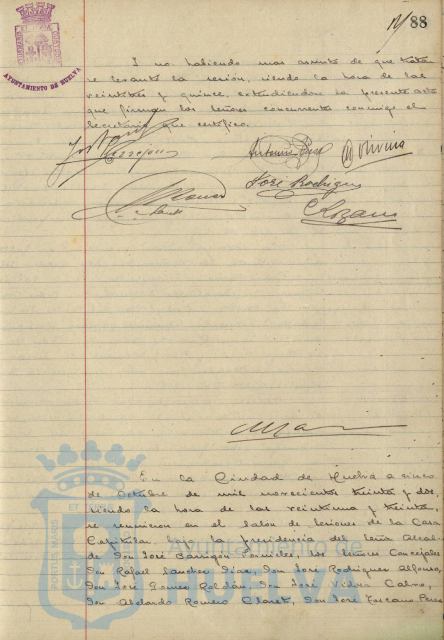 88
AYUNTAMIENTO DE HUELVA
Y no habiendo mas asunto de que tratar
se levantó la sesión, siendo la hora de las
veintitres y quince, extendiendose la presente acta
que firman los señores concurrentes conmigo el
Secretario que certifico.
Antonio
José Rodriguez
En la Ciudad de Huelva a cinco
de Octubre de mil novecientos treinta y dos,
siendo la hora de las veintiuna y treinta,
se reunieron en el Salon de sesiones de la Casa
Capitular, bajo la presidencia del Señor Alcal-
de Don José Barrigón Fornieles, los Señores Concejales
Don Rafael Sanchez Diaz, Don José Rodriguez Alfonso,
Don José Gomez Roldán, Don José Calvo,
Don Abelardo Romero Claret, Don José Toscano Perez
Ayuntamiento de
HUELVA
PORTUS MARIS ET